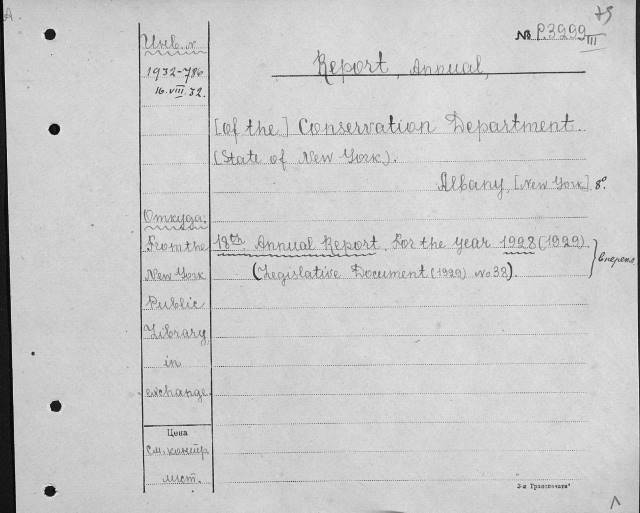 № P.3299
III
Инв. №
1932-786
16.VIII.32.
Report, Annual,
[of the] Conservation Department.
(State of New York).
Albany, [New York]. 8°
Откуда:
From the
New York
Public
Library,
in
exchange.
18th Annual Report. For the year 1928 (1929).
(Legislative Document (1929) No 38).
Цена
См. контр
лист.